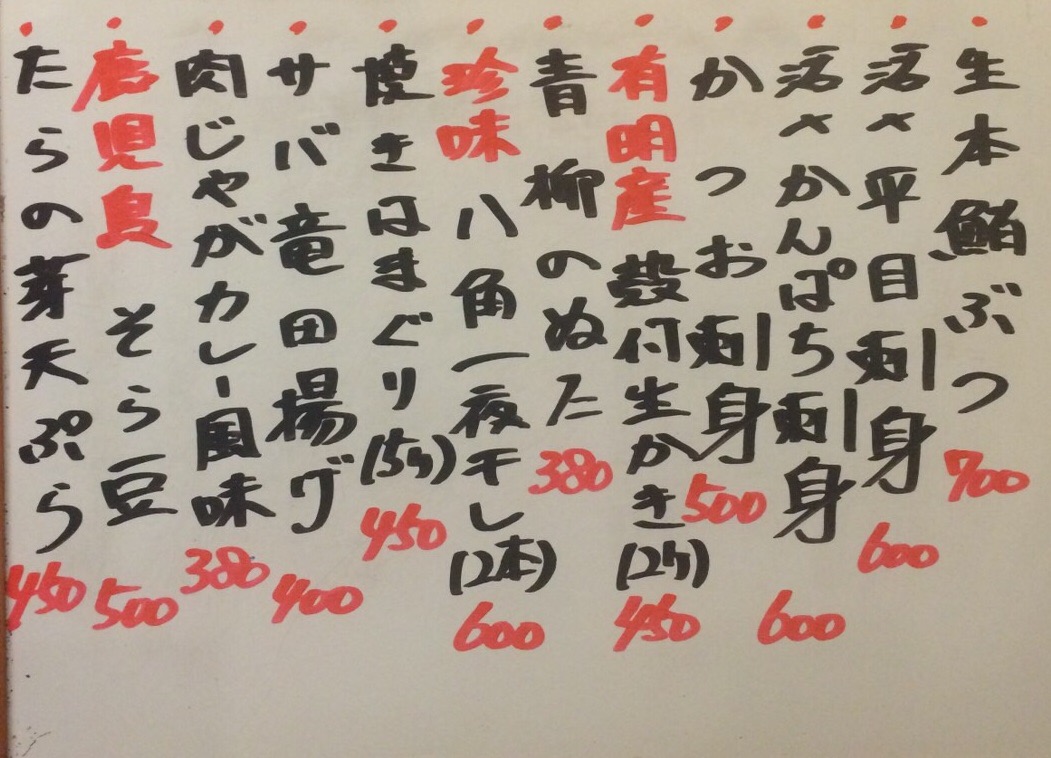 ・生本鮪ぶつ 700
・活〆平目刺身 600
・活〆かんぱち刺身 600
・かつお刺身 500
・有明産 殻付生かき(2ケ) 450
・青柳のぬた 380
・珍味 八角一夜干し(2本) 600
・焼きはまぐり(5ケ) 450
・サバ竜田揚げ 400
・肉じゃがカレー風味 380
・鹿児島 そら豆 500
・たらの芽天ぷら 450